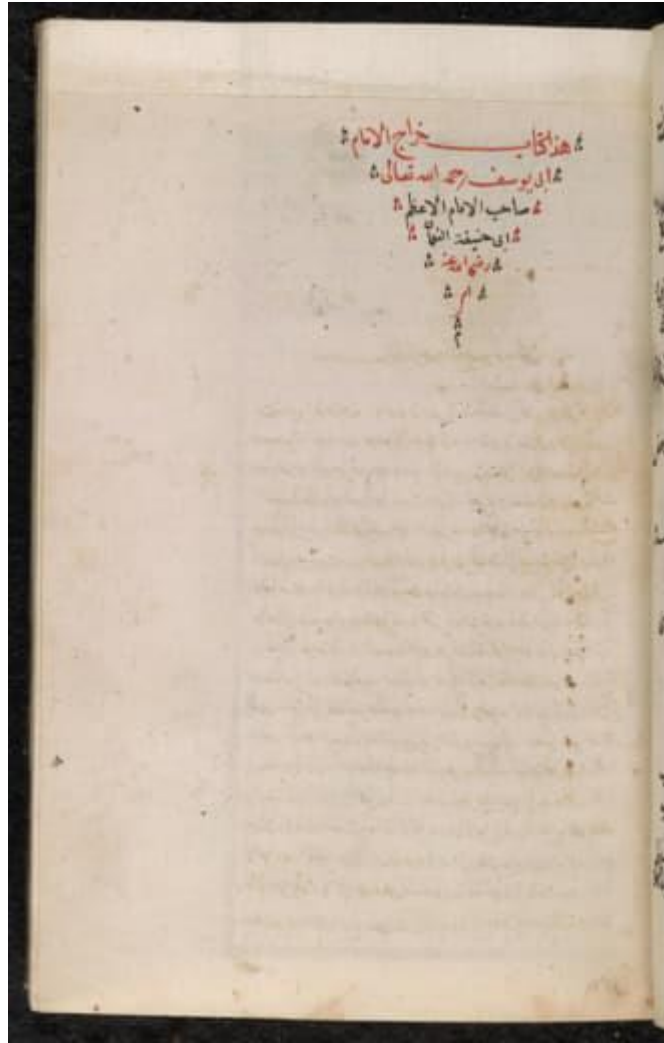 هذا كتاب خراج الامام
ابى يوسف رحمه الله تعالى
صاحب الامام الاعظم
ابى حنيفة النعمان
رضى الله عنه
ام
م